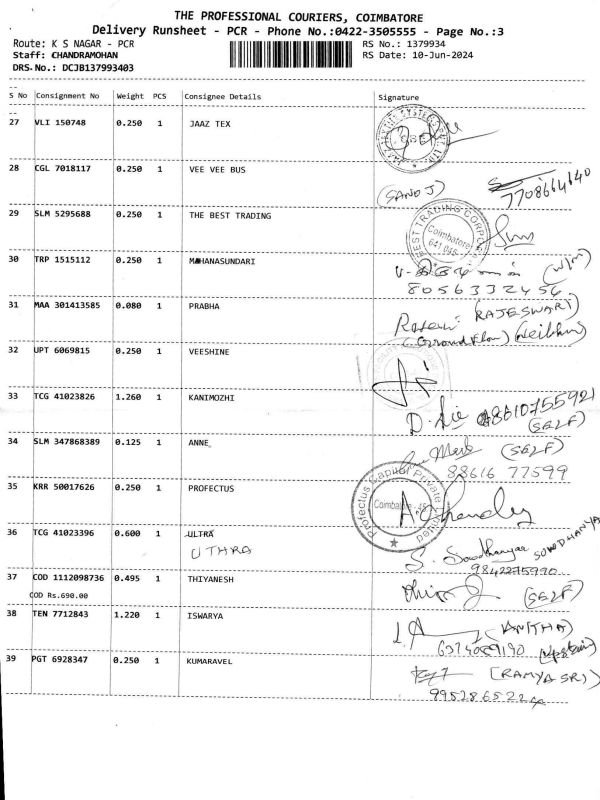 THE PROFESSIONAL COURIERS, COIMBATORE
Delivery Runsheet - PCR - Phone No.:0422-3505555 - Page No.:3
Route: K S NAGAR - PCR RS No.: 1379934
Staff: CHANDRAMOHAN RS Date: 10-Jun-2024
DRS-No.: DCJB137993403
S No Consignment No Weight PCS Consignee Details Signature
27 VLI 150748 0.250 1 JAAZ TEX
28 CGL 7018117 0.250 1 VEE VEE BUS
(SANOJ) 7708664640
29 SLM 5295688 0.250 1 THE BEST TRADING
BEST TRADING CORPORA
Coimbatore
641 045
30 TRP 1515112 0.250 1 MOHANASUNDARI
(W/M)
8056332456
31 MAA 301413585 0.080 1 PRABHA
(RAJESWARI)
(Ground Floor)
32 UPT 6069815 0.250 1 VEESHINE
33 TCG 41023826 1.260 1 KANIMOZHI
(SELF)
34 SLM 347868389 0.125 1 ANNE
(SELF)
88616 77599
35 KRR 50017626 0.250 1 PROFECTUS
Profectus Capital Private Limited
Coimbatore
36 TCG 41023396 0.600 1 ULTRA
UTHRA
S. Sowdhanyaa SOWDHANYA
9842275990
37 COD 1112098736 0.495 1 THIYANESH
COD Rs.690.00
(SELF)
38 TEN 7712843 1.220 1 ISWARYA
(ANITHA)
(Upstair)
39 PGT 6928347 0.250 1 KUMARAVEL
(RAMYA SRI)